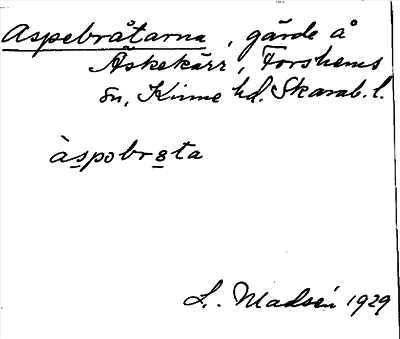 Aspebråtarna, gärde å
Äskekärr, Forshems
sn, Kinne hd. Skarab. l.
àspobrata
L. Madsén 1929